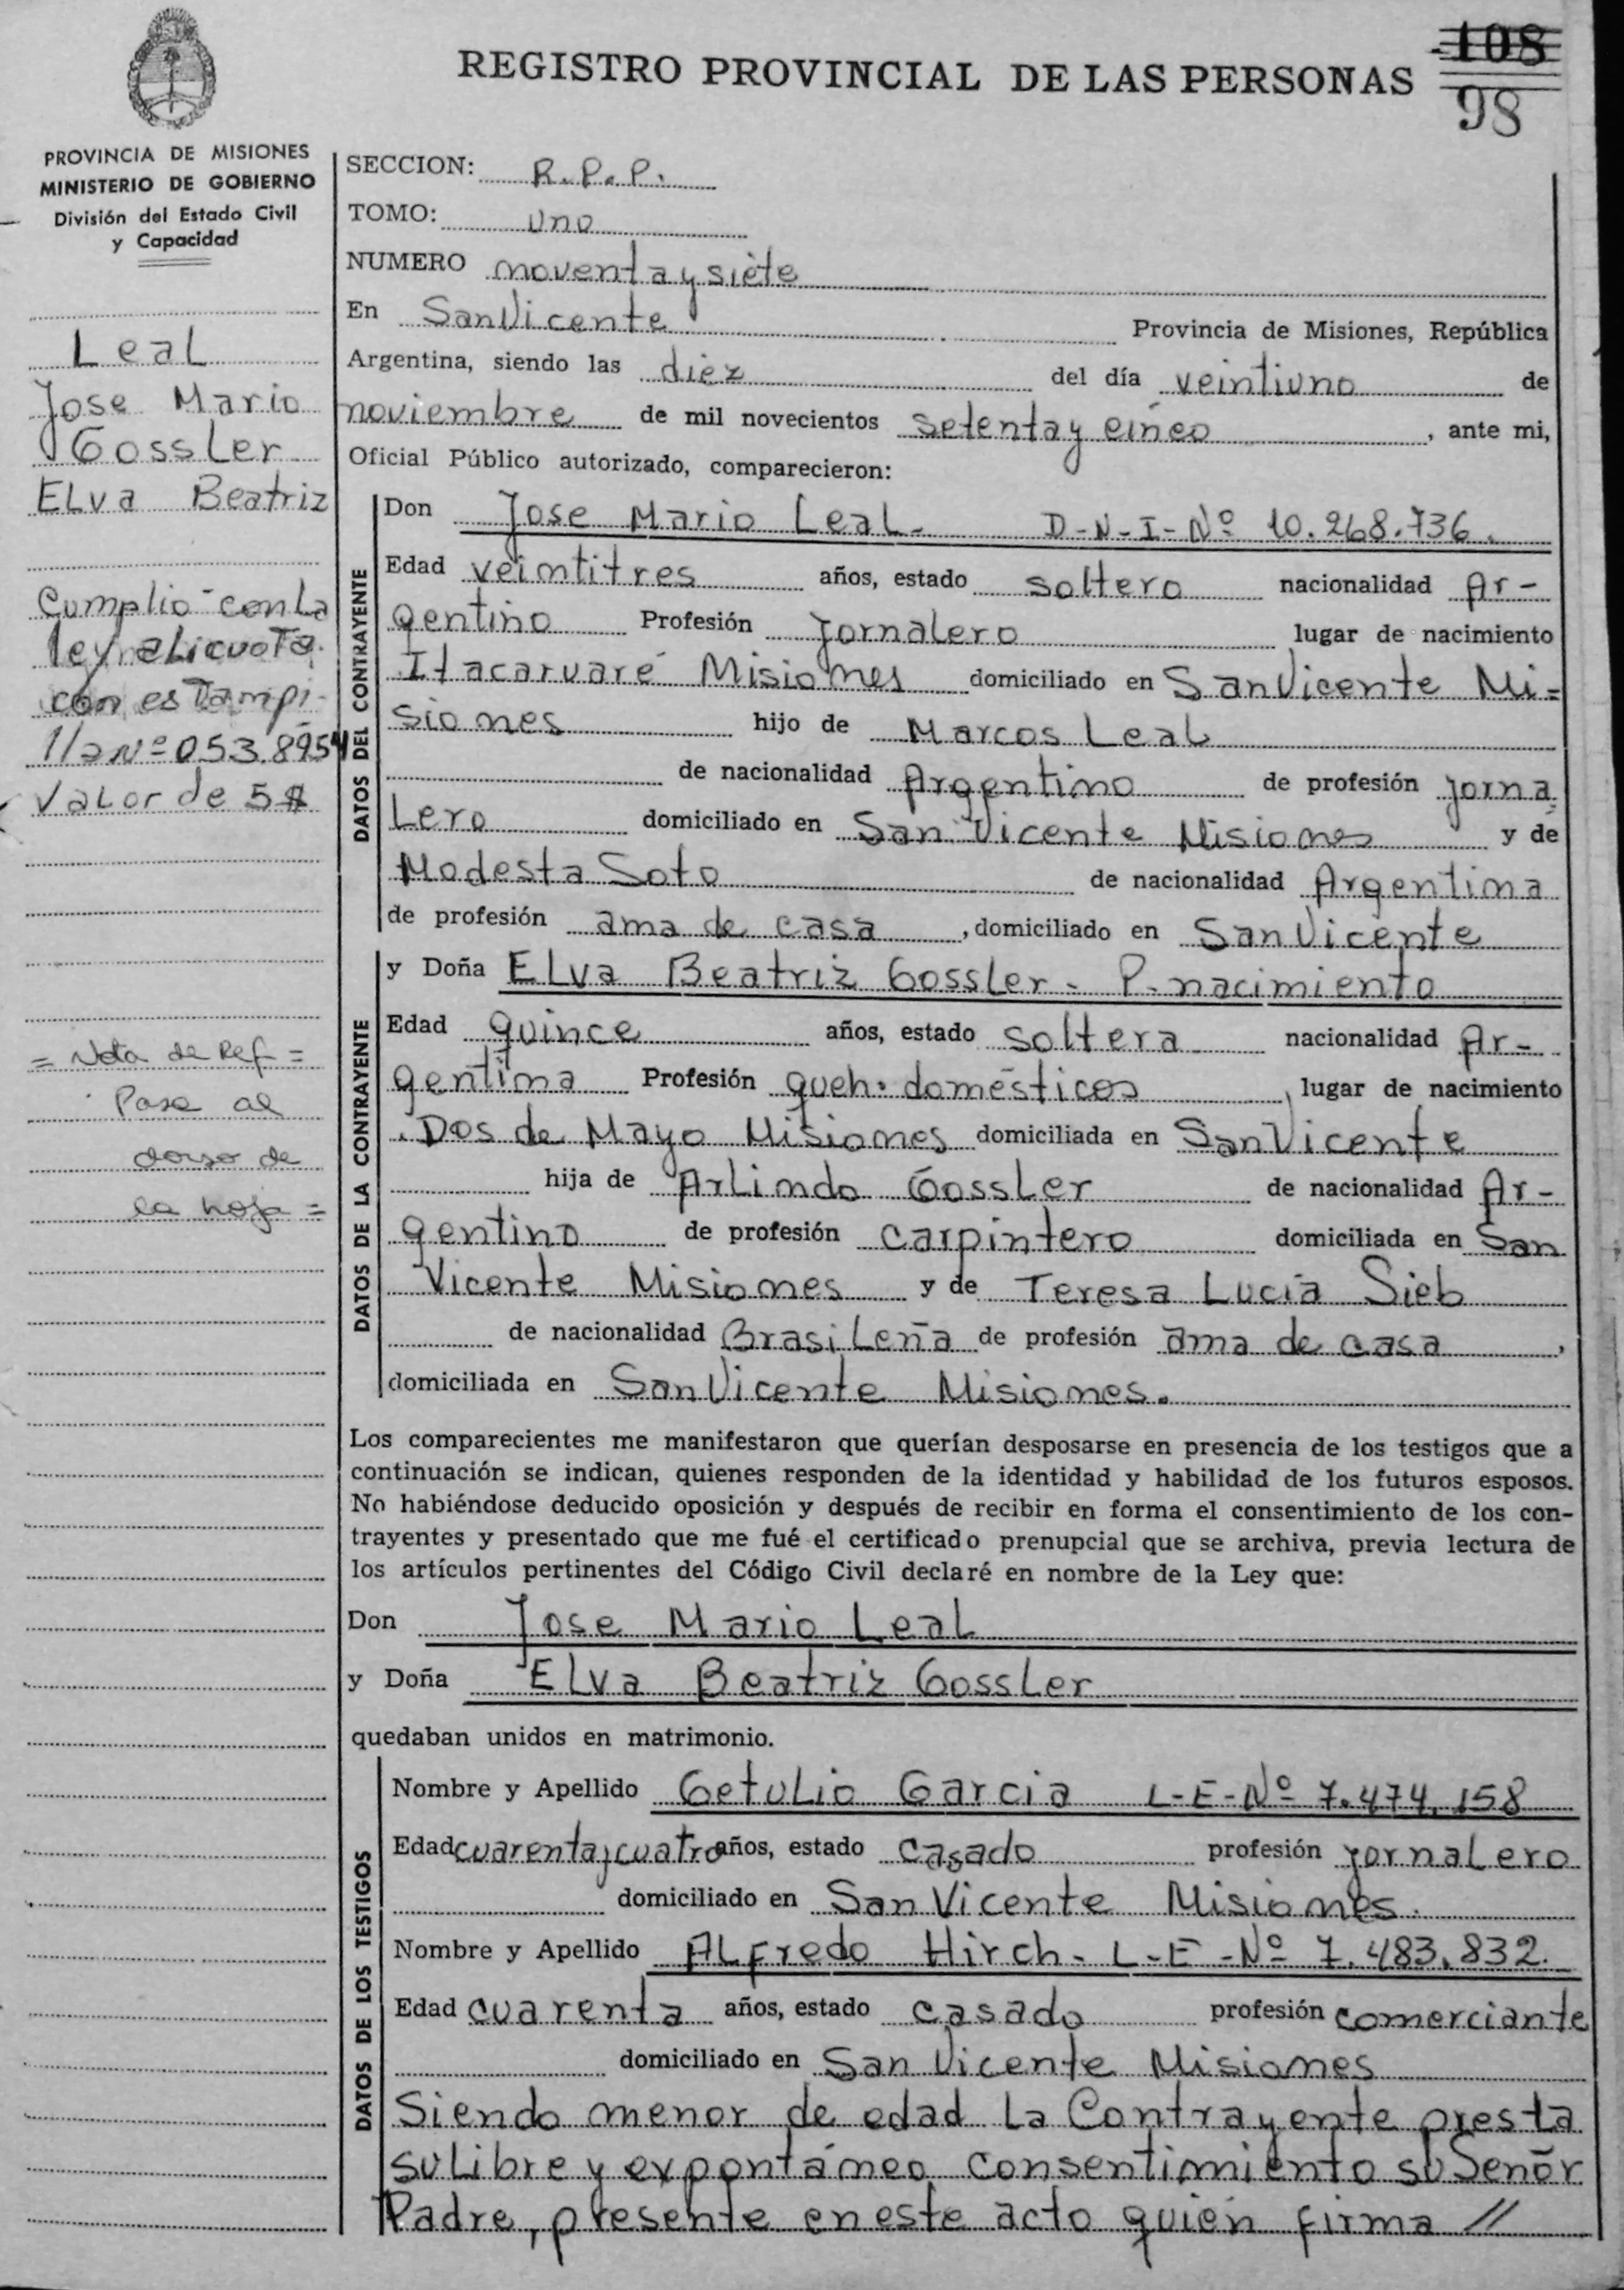 REGISTRO PROVINCIAL DE LAS PERSONAS
108
98
PROVINCIA DE MISIONES
MINISTERIO DE GOBIERNO
División del Estado Civil
y Capacidad
Leal
Jose Mario
Gossler
ELva Beatriz
Cumplio con La
ley alicuota
con estampi-
lla Nº 053.8954
Valor de 5$
= Nota de Ref =
Pasa al
dorso de
la hoja =
SECCION: R.P.P.
TOMO: uno
NUMERO noventa y siete
En San Vicente Provincia de Misiones, República
Argentina, siendo las diez del día veintiuno de
noviembre de mil novecientos setenta y cinco, ante mi,
Oficial Público autorizado, comparecieron:
DATOS DEL CONTRAYENTE
Don Jose Mario Leal- D-N-I-Nº 10.268.736.
Edad veintitres años, estado soltero nacionalidad Ar-
gentino Profesión Jornalero lugar de nacimiento
Itacaruaré Misiones domiciliado en San Vicente Mi=
siones hijo de Marcos Leal
de nacionalidad Argentino de profesión jorna=
Lero domiciliado en San Vicente Misiones y de
Modesta Soto de nacionalidad Argentina
de profesión ama de casa, domiciliado en San Vicente
DATOS DE LA CONTRAYENTE
y Doña ELva Beatriz Gossler- P.nacimiento
Edad quince años, estado soltera nacionalidad Ar-
gentina Profesión queh. domésticos, lugar de nacimiento
Dos de Mayo Misiones domiciliada en San Vicente
hija de Arlindo Gossler de nacionalidad Ar-
gentino de profesión carpintero domiciliada en San
Vicente Misiones y de Teresa Lucia Sieb
de nacionalidad BrasiLeña de profesión ama de casa,
domiciliada en San Vicente Misiones.
Los comparecientes me manifestaron que querían desposarse en presencia de los testigos que a
continuación se indican, quienes responden de la identidad y habilidad de los futuros esposos.
No habiéndose deducido oposición y después de recibir en forma el consentimiento de los con-
trayentes y presentado que me fué el certificado prenupcial que se archiva, previa lectura de
los artículos pertinentes del Código Civil declaré en nombre de la Ley que:
Don Jose Mario Leal
y Doña ELva Beatriz Gossler
quedaban unidos en matrimonio.
DATOS DE LOS TESTIGOS
Nombre y Apellido Getulio Garcia L-E-Nº 7.474.158
Edad cuarenta y cuatro años, estado casado profesión jornalero
domiciliado en San Vicente Misiones.
Nombre y Apellido Alfredo Hirch- L-E-Nº 7.483.832.
Edad cuarenta años, estado casado profesión comerciante
domiciliado en San Vicente Misiones
Siendo menor de edad la Contrayente presta
su Libre y expontáneo consentimiento su Señor
Padre, presente en este acto quién firma //